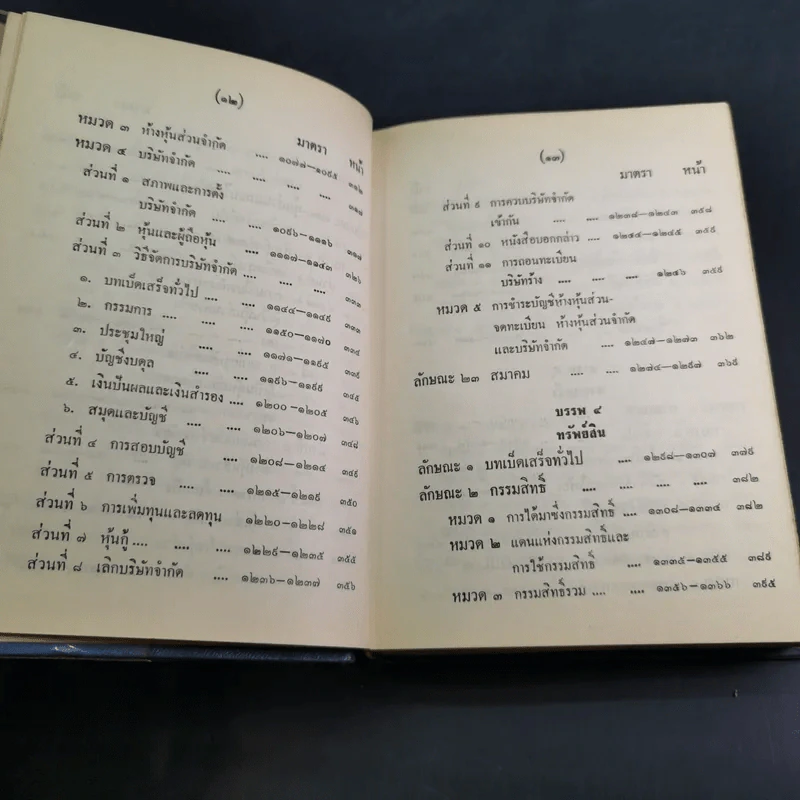 (๑๒)
มาตรา หน้า
หมวด ๓ ห้างหุ้นส่วนจำกัด .... ๑๐๗๗—๑๐๙๕ ๓๑๒
หมวด ๔ บริษัทจำกัด .... .... .... ๓๑๗
ส่วนที่ ๑ สภาพและการตั้ง
บริษัทจำกัด .... ๑๐๙๖—๑๑๑๖ ๓๑๗
ส่วนที่ ๒ หุ้นและผู้ถือหุ้น .... ๑๑๑๗—๑๑๔๓ ๓๒๖
ส่วนที่ ๓ วิธีจัดการบริษัทจำกัด .... .... ๓๓๓
๑. บทเบ็ดเสร็จทั่วไป .... ๑๑๔๔—๑๑๔๙ ๓๓๓
๒. กรรมการ .... .... ๑๑๕๐—๑๑๗๐ ๓๓๔
๓. ประชุมใหญ่ .... ๑๑๗๑—๑๑๙๕
๔. บัญชีงบดุล .... ๑๑๙๖—๑๑๙๙ ๓๔๕
๕. เงินปันผลและเงินสำรอง .... ๑๒๐๐—๑๒๐๕ ๓๔๖
๖. สมุดและบัญชี .... .... ๑๒๐๖—๑๒๐๗ ๓๔๘
ส่วนที่ ๔ การสอบบัญชี .... ๑๒๐๘—๑๒๑๔ ๓๔๙
ส่วนที่ ๕ การตรวจ .... .... ๑๒๑๕—๑๒๑๙ ๓๕๐
ส่วนที่ ๖ การเพิ่มทุนและลดทุน ๑๒๒๐—๑๒๒๘ ๓๕๑
ส่วนที่ ๗ หุ้นกู้ .... .... ๑๒๒๙—๑๒๓๕ ๓๕๕
ส่วนที่ ๘ เลิกบริษัทจำกัด .... ๑๒๓๖—๑๒๓๗ ๓๕๖
(๑๓)
มาตรา หน้า
ส่วนที่ ๙ การควบบริษัทจำกัด
เข้ากัน .... .... ๑๒๓๘—๑๒๔๓ ๓๕๘
ส่วนที่ ๑๐ หนังสือบอกกล่าว .... ๑๒๔๔—๑๒๔๕ ๓๕๙
ส่วนที่ ๑๑ การถอนทะเบียน
บริษัทร้าง .... .... .... ๑๒๔๖ ๓๕๙
หมวด ๕ การชำระบัญชีห้างหุ้นส่วน-
จดทะเบียน ห้างหุ้นส่วนจำกัด
และบริษัทจำกัด .... ๑๒๔๗—๑๒๗๓ ๓๖๒
ลักษณะ ๒๓ สมาคม .... .... ๑๒๗๔—๑๒๙๗ ๓๖๙
บรรพ ๔
ทรัพย์สิน
ลักษณะ ๑ บทเบ็ดเสร็จทั่วไป .... ๑๒๙๘—๑๓๐๗ ๓๗๙
ลักษณะ ๒ กรรมสิทธิ์ .... .... .... .... ๓๘๒
หมวด ๑ การได้มาซึ่งกรรมสิทธิ์ .... ๑๓๐๘—๑๓๓๔ ๓๘๒
หมวด ๒ แดนแห่งกรรมสิทธิ์และ
การใช้กรรมสิทธิ์ .... ๑๓๓๕—๑๓๕๕ ๓๘๙
หมวด ๓ กรรมสิทธิ์รวม .... .... ๑๓๕๖—๑๓๖๖ ๓๙๕